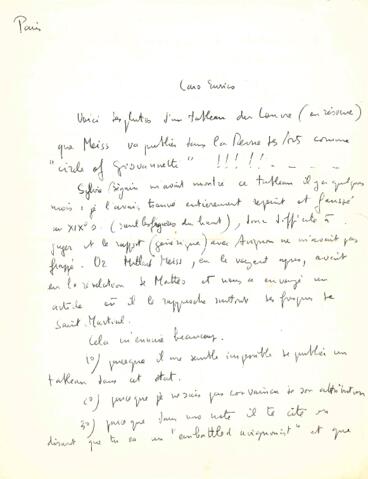 Paris
Caro Enrico
Voici des photos d'un tableau du Louvre (en réserve)
que Meiss va publier dans la Revue des Arts comme
"circle of Giovannetti" !!! !!. . . .
Sylvie Béguin m'avait montré ce tableau il y a quelques
mois, je l'avais trouvé entièrement repeint et faussé
au XIXe s. (sauf les figures du haut), donc difficile à
juger et le rapport (générique) avec Avignon ne m'avait pas
frappé. Or Millard Meiss, en le voyant après, avait
eu la révélation de Matteo et nous a envoyé un
article où il le rapproche surtout des fresques de
Saint Martial.
Cela m'ennuie beaucoup.
1o) parce que il me semble impossible de publier un
tableau dans cet état.
2o) parce que je ne suis pas convaincu de son attribution
3o) parce que dans une note il te cite en
disant que tu es un "embattled avignonist" et que